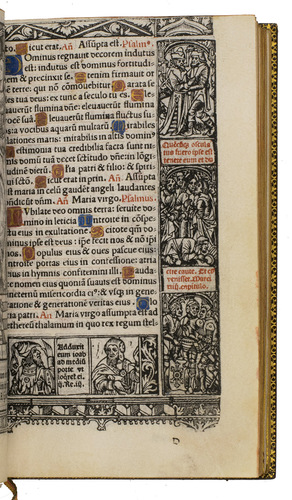 cto. Sicut erat. Añ Assũpta est. Psalm⁹.
Ominus regnauit decorem indutus
est: indutus est dominus fortitudi
nem & precinxit se. Etenim firmauit or
bẽ terre: qui nõ cõmouebitur. Parata se
des tua deus: ex tunc a seculo tu es. Ele
uauerũt flumina dñe: eleuauerũt flumina
uocẽ suã. Eleuauerũt flumina fluctus su
os: a vocibus aquarũ multarũ. Mirabiles
elationes maris: mirabilis in altis domin⁹
Testimonia tua credibilia facta sunt ni
mis domũ tuã decet sctitudo dñe in lõgi
tudinẽ dierũ. Gloria patri & filio: & spiri
tui sctõ. Sicut erat in prin. Añ Assũpta
est maria in celũ gaudẽt angeli laudantes
bñdicũt dñm. Añ Maria virgo. Psalmus.
Iubilate deo omnis terra: seruite do
mino in leticia Introite in cõspe
ctu eius in exultatione. Scitote qm̃ do
minus ipse est deus: ipse fecit nos & nõ ipi
nos. Populus eius & oues pascue eius:
introite portas eius in confessione: atria
eius in hymnis confitemini illi. Lauda
te nomen eius quoniã suauis est dominus
in eternũ misericordia ei⁹: & vsq in gene
rationem & generationẽ veritas eius. Glo
ria patri. Añ Maria virgo assumpta est ad
ethereũ thalamum in quo rex regum stel
Adduxit
eum ioab
ad mediũ
porte vt
ei.
ij. Re. iij.
D